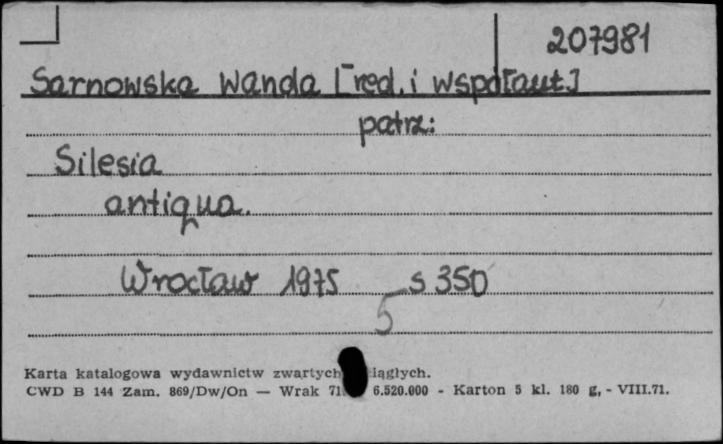 207981
Sarnowska Wanda [red. i współaut.]
patrz:
Silesia
antiqua.
Wrocław 1975 s 350
5
Karta katalogowa wydawnictw zwartych ciągłych.
CWD B 144 Zam. 869/Dw/On — Wrak 71 6.520.000 - Karton 5 kl. 180 g, - VIII.71.